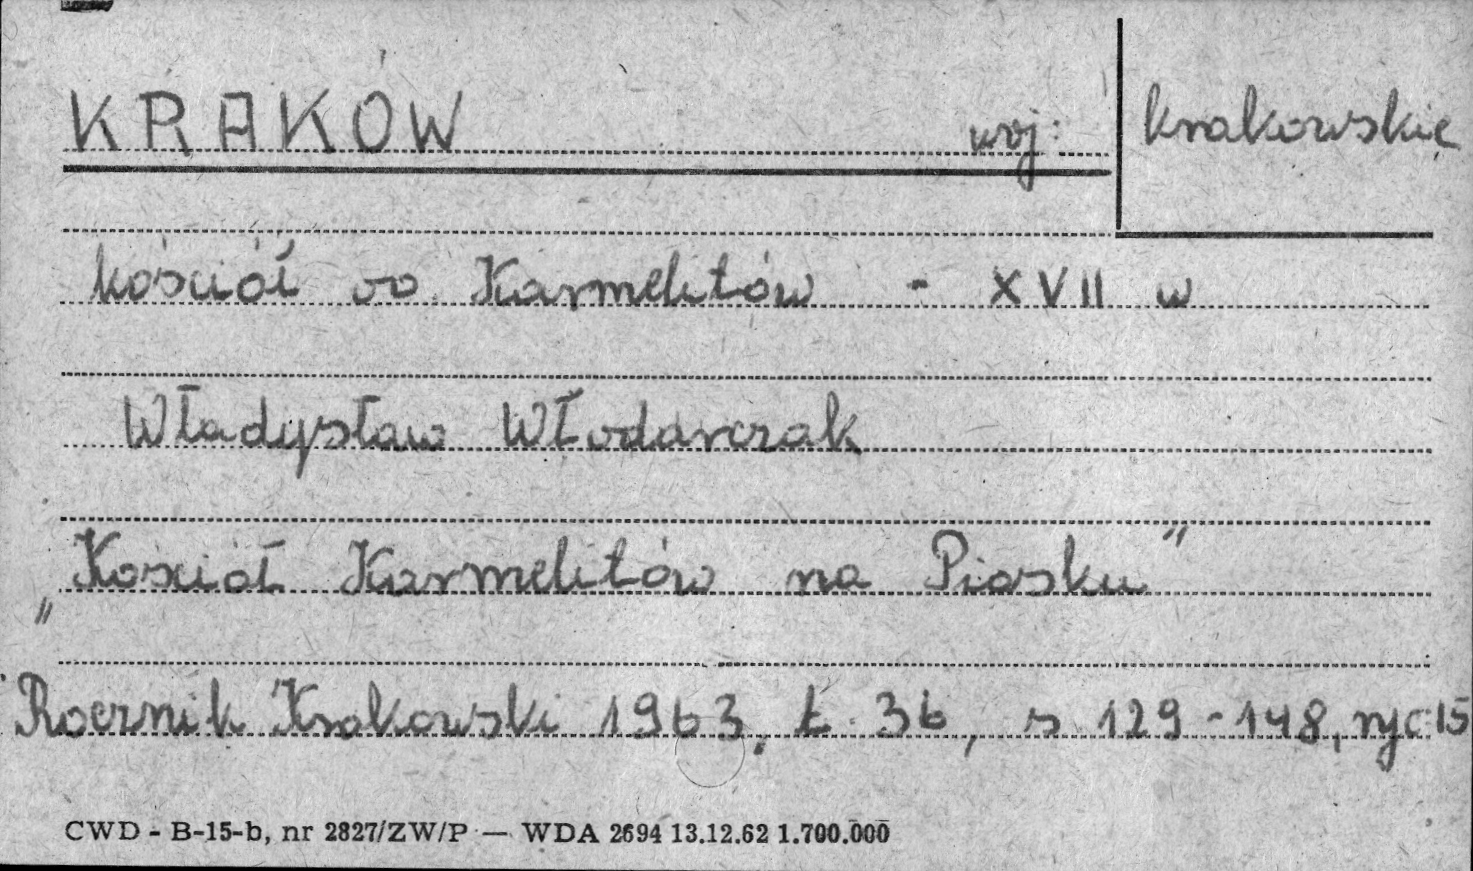 KRAKÓW woj: krakowskie
kościół oo. Karmelitów - XVII w
Władysław Włodarczak
"Kościół Karmelitów na Piasku"
Rocznik Krakowski 1963. t. 36, s 129-148, ryc 15
CWD - B-15-b, nr 2827/ZW/P — WDA 2694 13.12.62 1.700.000